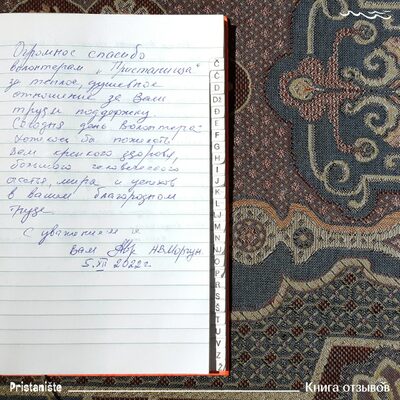 Огромное спасибо
волонтерам „Пристанища"
за теплое, душевное
отношение за Ваш
труд и поддержку.
Сегодня день Волонтера.
Хотелось бы пожелать
Вам крепкого здоровья,
большого человеческого
счастья, мира и успехов
в вашем благородном
труде.
С уважением к
Вам
5.XII 2022г.
Č
Ć
D
DŽ
Đ
E
F
G
H
I
J
K
L
LJ
M
N
NJ
O
P
R
S
Š
T
U
V
Z
Ž
Pristanište
Книга отзывов